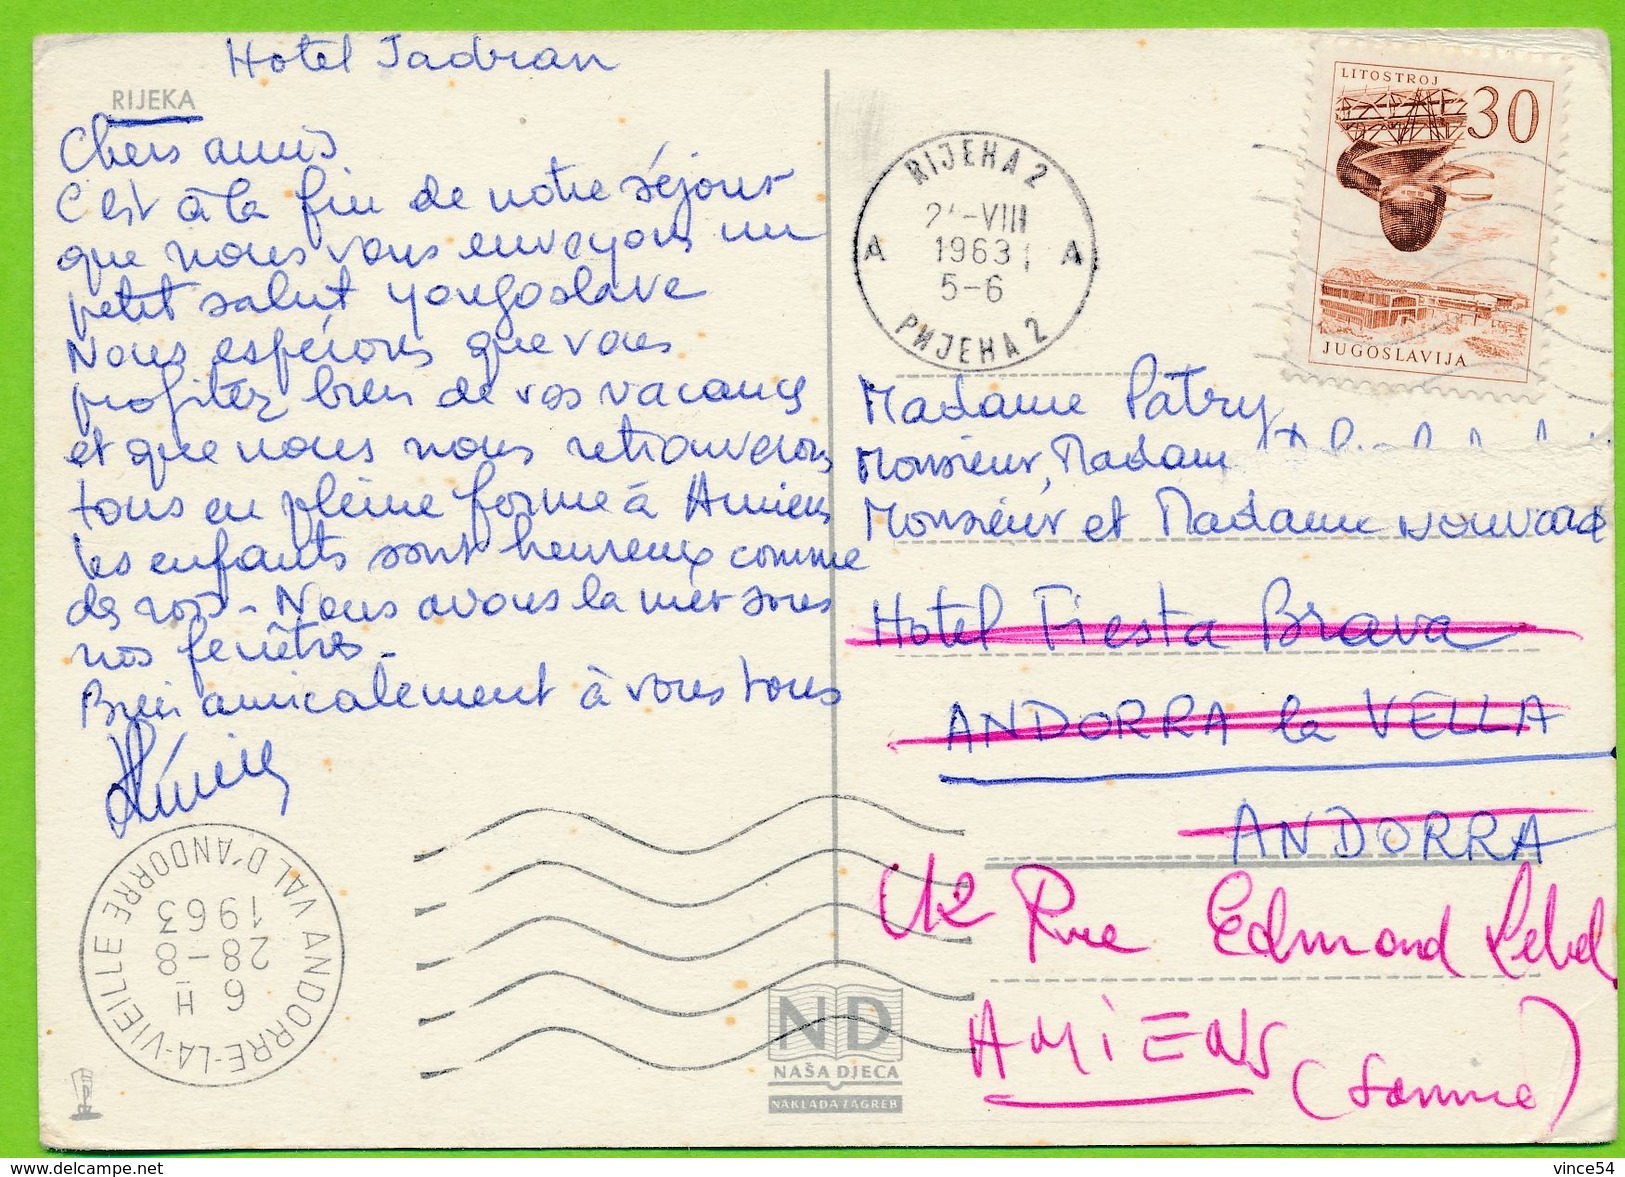 Hotel Jadran
RIJEKA
Chers amis
C'est à la fin de notre séjour
que nous vous envoyons un
petit salut yougoslave
Nous espérons que vous
profitez bien de vos vacances
et que nous nous retrouverons
tous en pleine forme à Amiens
les enfants sont heureux comme
des rois - Nous avons la mer sous
nos fenêtres -
Bien amicalement à vous tous
RIJEKA 2
-VIII
1963
5-6
A A
РИЈЕКА 2
LITOSTROJ
30
JUGOSLAVIJA
Madame Patry
Monsieur, Madame
Monsieur et Madame
Hotel Fiesta Brava
ANDORRA la VELLA
ANDORRA
Rue Edmond Lebel
AMIENS
(Somme)
ANDORRE-LA-VIEILLE
VAL D'ANDORRE
6 H
28-8
1963
ND
NAŠA DJECA
NAKLADA ZAGREB
delcampe.net
vince54